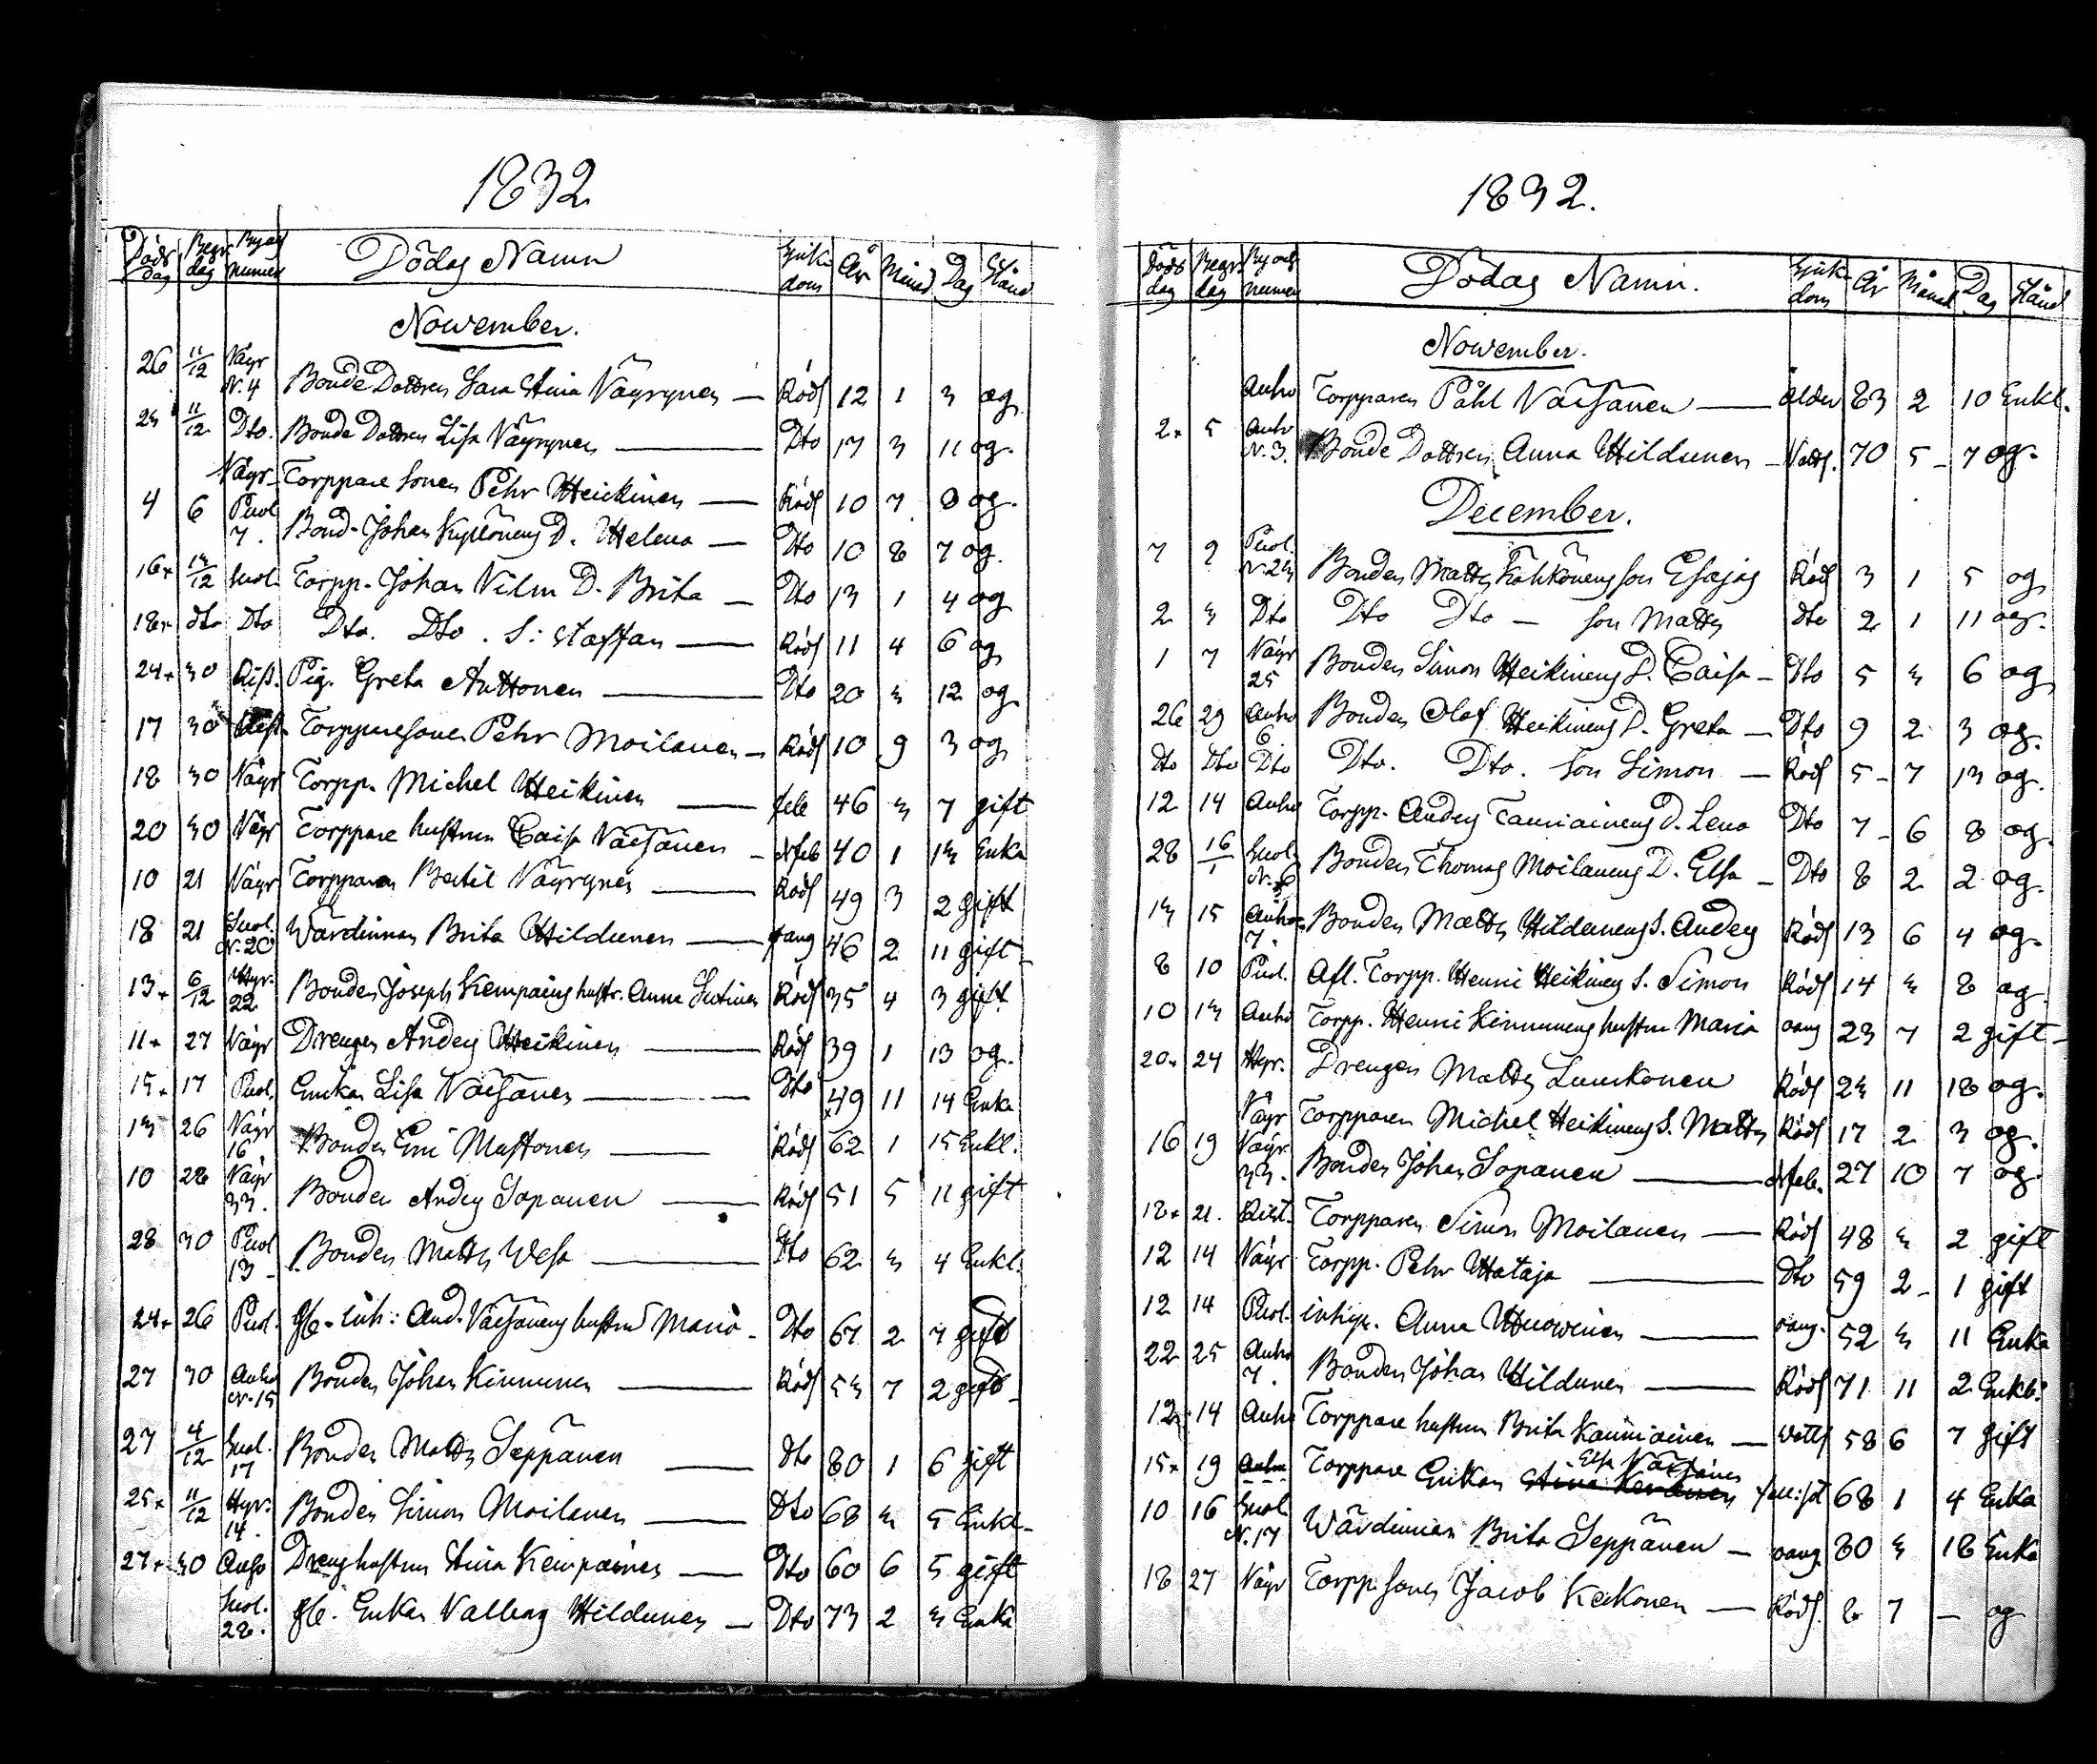 1832
Döds dag Begr. dag By och numer Dödas Namn Sjukdom År Månad Dag Stånd
November.
26 11/12 Näyr N. 4 Bonde Dottren Sara Stina Näyrynen — Röds 12 1 3 og.
11/12 Dto. Bonde Dottren Lisa Näyrynen — Dto 3 11 og.
Näyr Torppare sonen Pehr Heickinen — Röds 10 7 8 og.
4 6 Puol 7. Bond. Johan Kyllönens D. Helena — Dto 10 8 7 og.
16 /12 Suol. Torpp. Johan Vilm D. Brita — Dto 13 1 4 og
18 dto Dto Dto. Dto. S: Staffan — Röds 11 4 6 og
24 30 Rist. Pig. Greta Anttonen — Dto 20 3 12 og
17 30 Rist. Torpparesonen Pehr Moilanen — Röds 10 9 3 og
18 30 Näyr Torpp. Michel Heikinen — feb 46 3 7 gift
20 30 Näyr Torppare hustrun Caisa Väisänen — Nfeb 40 1 13 Enka
10 21 Näyr Torpparen Bertil Näyrynen — Röds 49 3 2 gift
18 21 Suol. N. 20 Wärdinnan Brita Hildunen — 46 2 11 gift
13 6/12 Hyr. 22 Bonden Joseph Kempaing hustr. Anna Sutinen Röds 35 4 3 gift
11 27 Näyr Drengen Anders Heikinen — Röds 39 1 13 og.
15 17 Puol. Enckan Lisa Väisänen — Dto 49 11 14 Enka
13 26 Näyr 16 Bonden Eric Mustonen — Röds 62 1 15 Enkl.
10 28 Näyr 33. Bonden Anders Sopanen — Röds 51 5 11 gift
28 30 Puol 13 Bonden Matts Vesa — Dto 62 3 4 Enkl.
24 26 Puol. gb. inh: And. Väisänens hustru Maria Dto 67 2 7 gift
27 30 Anho N. 15 Bonden Johan Kinnunen — Röds 53 7 2 gift
27 4/12 Suol. 17 Bonden Matts Seppänen — Dto 80 1 6 gift
25 11/12 Hyr. 14. Bonden Simon Moilanen — Dto 68 3 5 Enkl.
27 30 Anho Dreng hustrun Stina Kempainen — Dto 60 6 5 gift
Suol. 28. gb. Enkan Valborg Hildunen — Dto 73 2 3 Enka
1832.
Döds dag Begr. dag By och numer Dödas Namn. Sjukdom År Månad Dag Stånd
November.
Anho Torpparen Påhl Väisänen — Ålder 83 2 10 Enkl.
2 5 Anho N. 3. Bonde Dottren Anna Hildunen — Watts. 70 5 7 og.
December.
7 9 Puol. N. 23 Bonden Matts Kähkönens son Esajas Röds 3 1 5 og
2 3 Dto Dto Dto — son Matts Dto 2 1 11 og.
1 7 Näyr 25 Bonden Simon Heikinens D. Caisa — Dto 5 3 6 og
26 29 Anho 6 Bonden Olof Heikinens D. Greta — Dto 9 2 3 og.
Dto Dto Dto Dto. Dto. son Simon — Röds 5 7 13 og.
12 14 Anho Torpp. Anders Tauriainens D. Lena Dto 7 6 8 og.
28 16/1 Suol. Bonden Thomas Moilanens D. Elsa — Dto 8 2 2 og.
13 15 Anho 7. Bonden Matts Hildunens S. Anders Röds 13 6 4 og.
8 10 Puol. Afl. Torpp. Henric Heikinens S. Simon Röds 14 3 8 og
10 13 Anho Torpp. Henric Kinnunens hustru Maria 23 7 2 gift
20 24 Hyr. Drengen Matts Lunckonen Röds 23 11 18 og.
Näyr Torpparen Michel Heikinens S. Matts Röds 17 2 3 og.
16 19 Näyr. 33. Bonden Johan Sopanen — Nfeb. 27 10 7 og
18 21. Rist. Torpparen Simon Moilanen — Röds 48 3 2 gift
12 14 Näyr Torpp. Pehr Hataja — Dto 59 2 1 gift
12 14 Puol. inhys. Anna Huowinen — 52 3 11 Enka
22 25 Anho 7. Bonden Johan Hildunen — Röds 71 11 2 Enkl.
12 14 Anho Torppare hustrun Brita Kauniainen — Watts 58 6 7 gift
15 19 Anho Torppare Enkan Elsa Väisänen 68 1 4 Enka
10 16 Suol. N. 17 Wärdinnan Brita Seppänen — 80 3 18 Enka
18 27 Näyr Torpp. sonen Jacob Keikonen — Röds. 8 7 — og